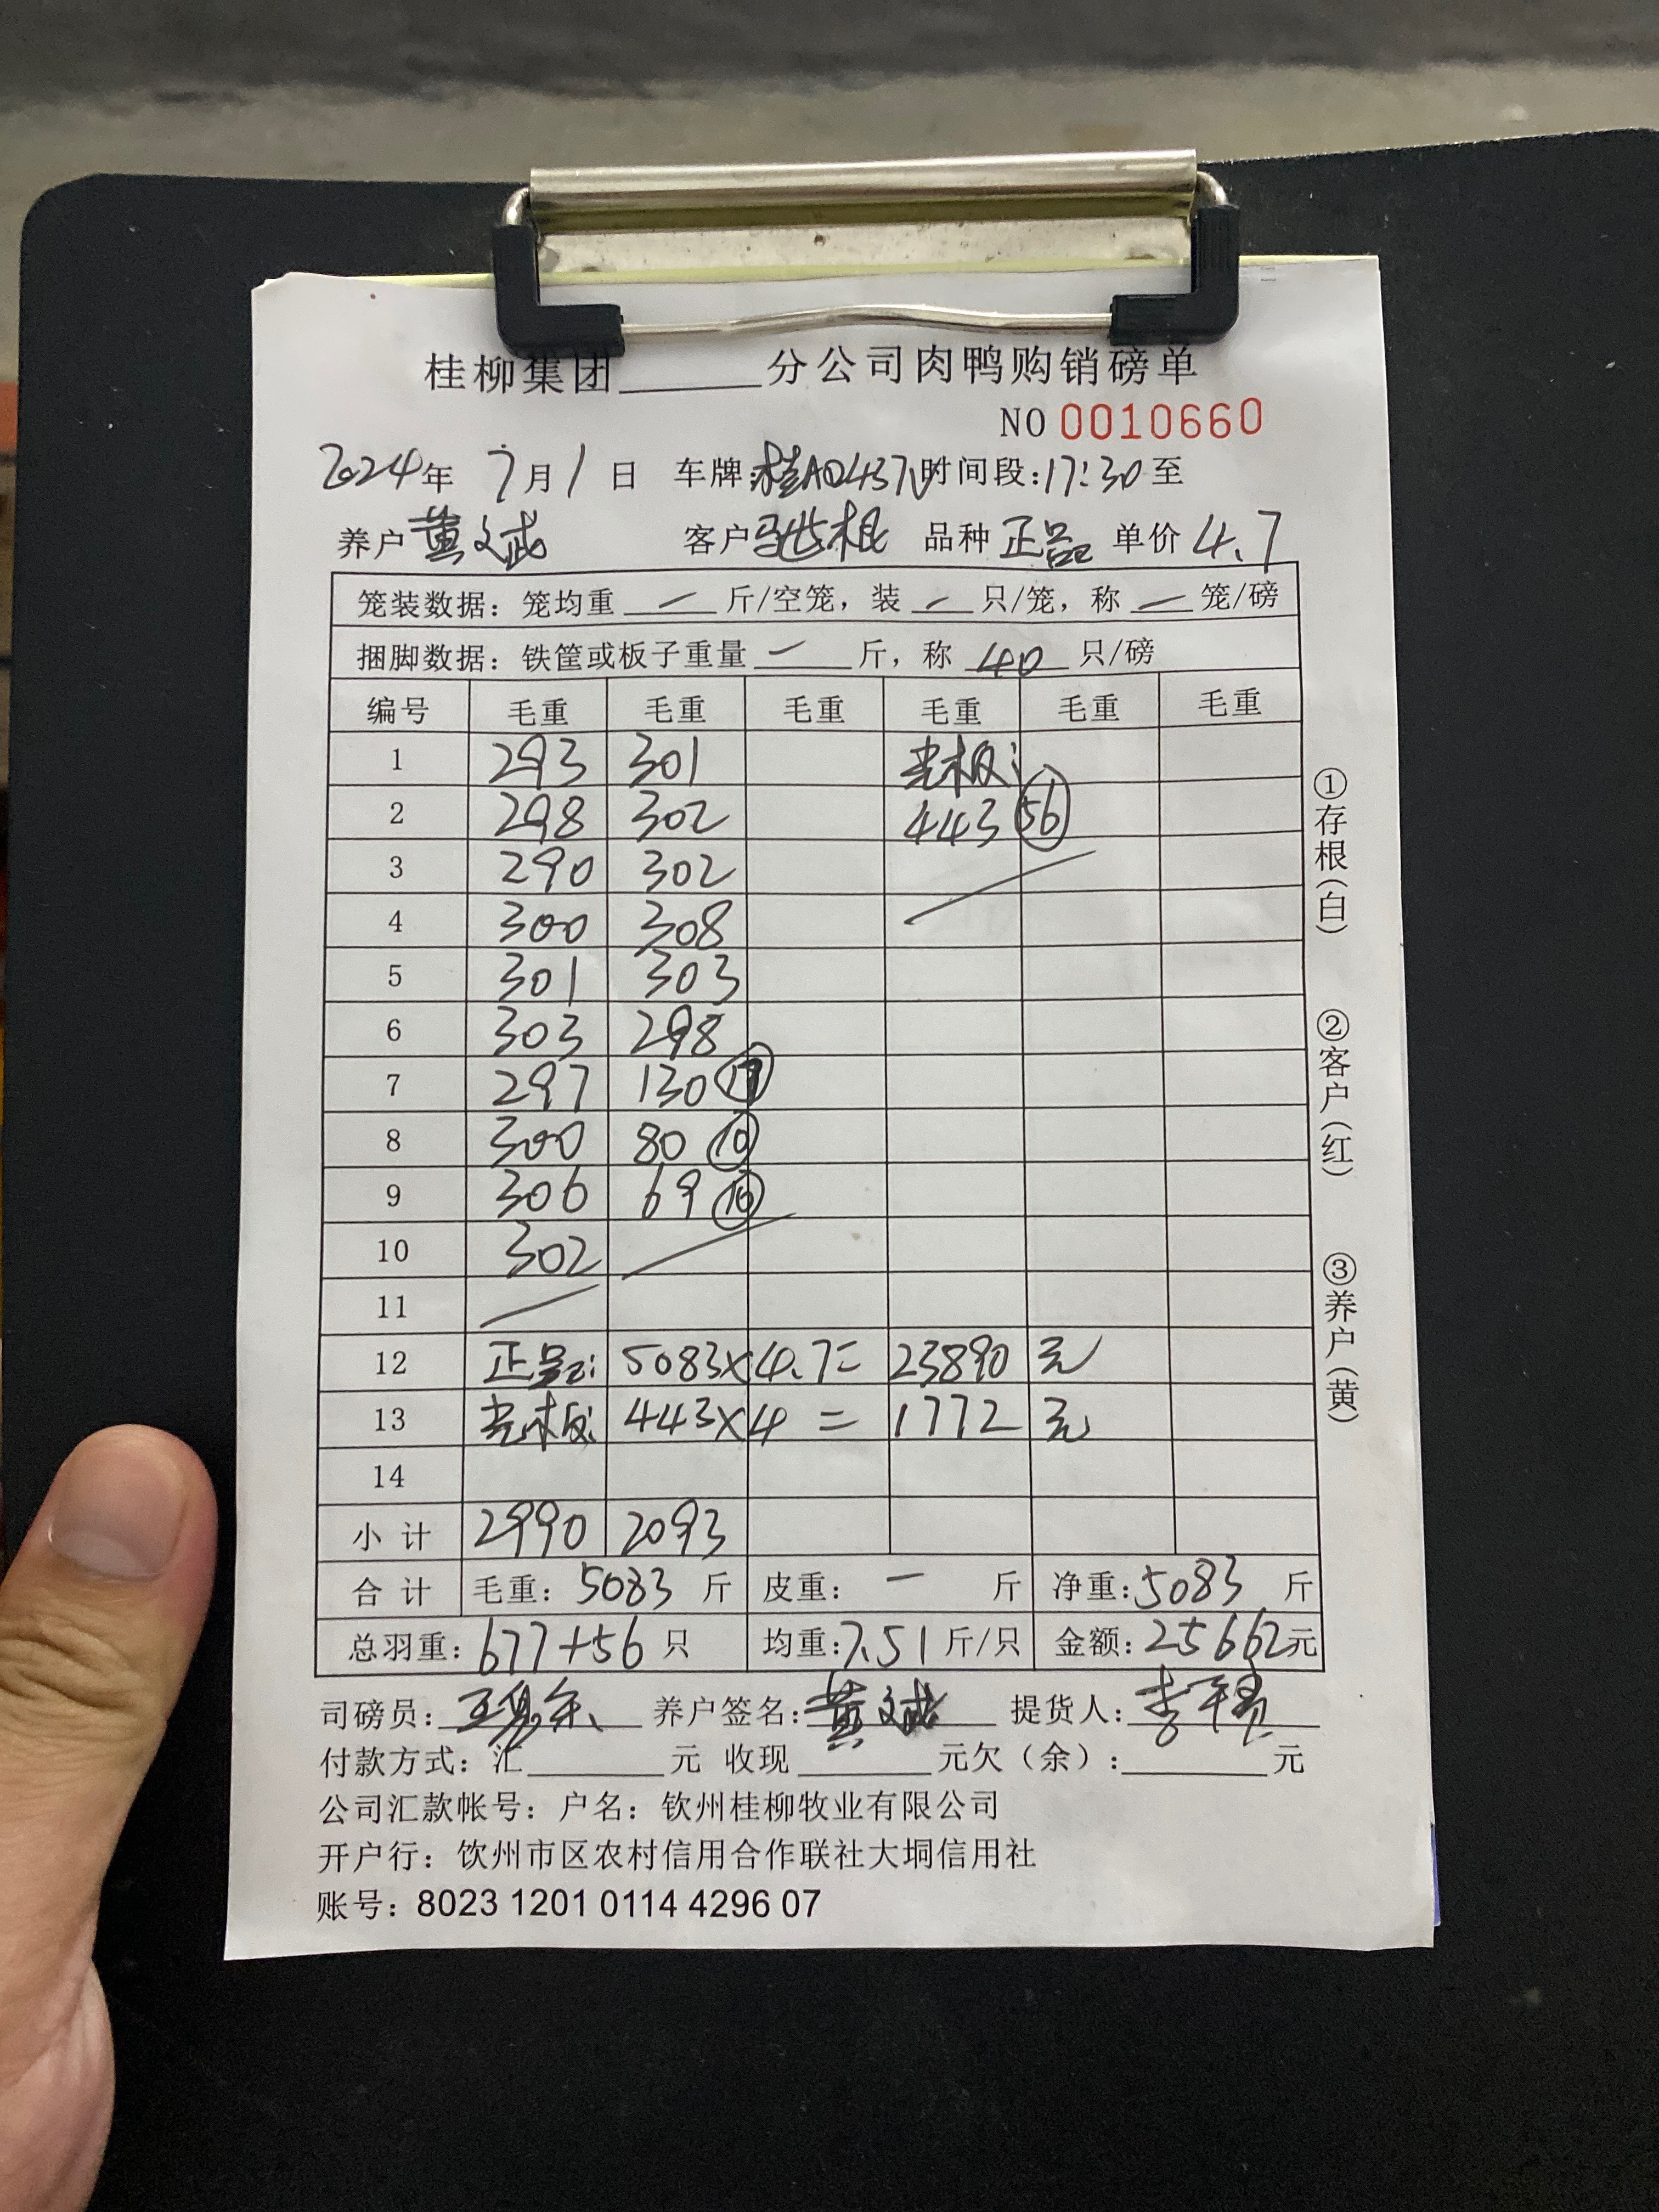 桂柳集团______分公司肉鸭购销磅单
NO 0010660
2024年 7月1日 车牌:桂A0437 时间段:17:30至
养户 黄文斌 客户 根 品种 正品 单价 4.7
笼装数据：笼均重 — 斤/空笼，装 — 只/笼，称 — 笼/磅
捆脚数据：铁筐或板子重量 — 斤，称 40 只/磅
编号 毛重 毛重 毛重 毛重 毛重 毛重
1 293 301 光板:
2 298 302 443 56
3 290 302
4 300 308
5 301 303
6 303 298
7 297 130
8 300 80 10
9 306 69 10
10 302
11
12 正品: 5083×4.7= 23890 元
13 光板: 443×4 = 1772 元
14
小计 2990 2093
合计 毛重: 5083 斤 皮重: — 斤 净重:5083 斤
总羽重: 677+56 只 均重:7.51 斤/只 金额:25662元
司磅员: 养户签名:黄文斌 提货人:李
付款方式：汇______元 收现______元欠（余）:______元
公司汇款帐号：户名：钦州桂柳牧业有限公司
开户行：饮州市区农村信用合作联社大垌信用社
账号：8023 1201 0114 4296 07
①存根(白)
②客户(红)
③养户(黄)